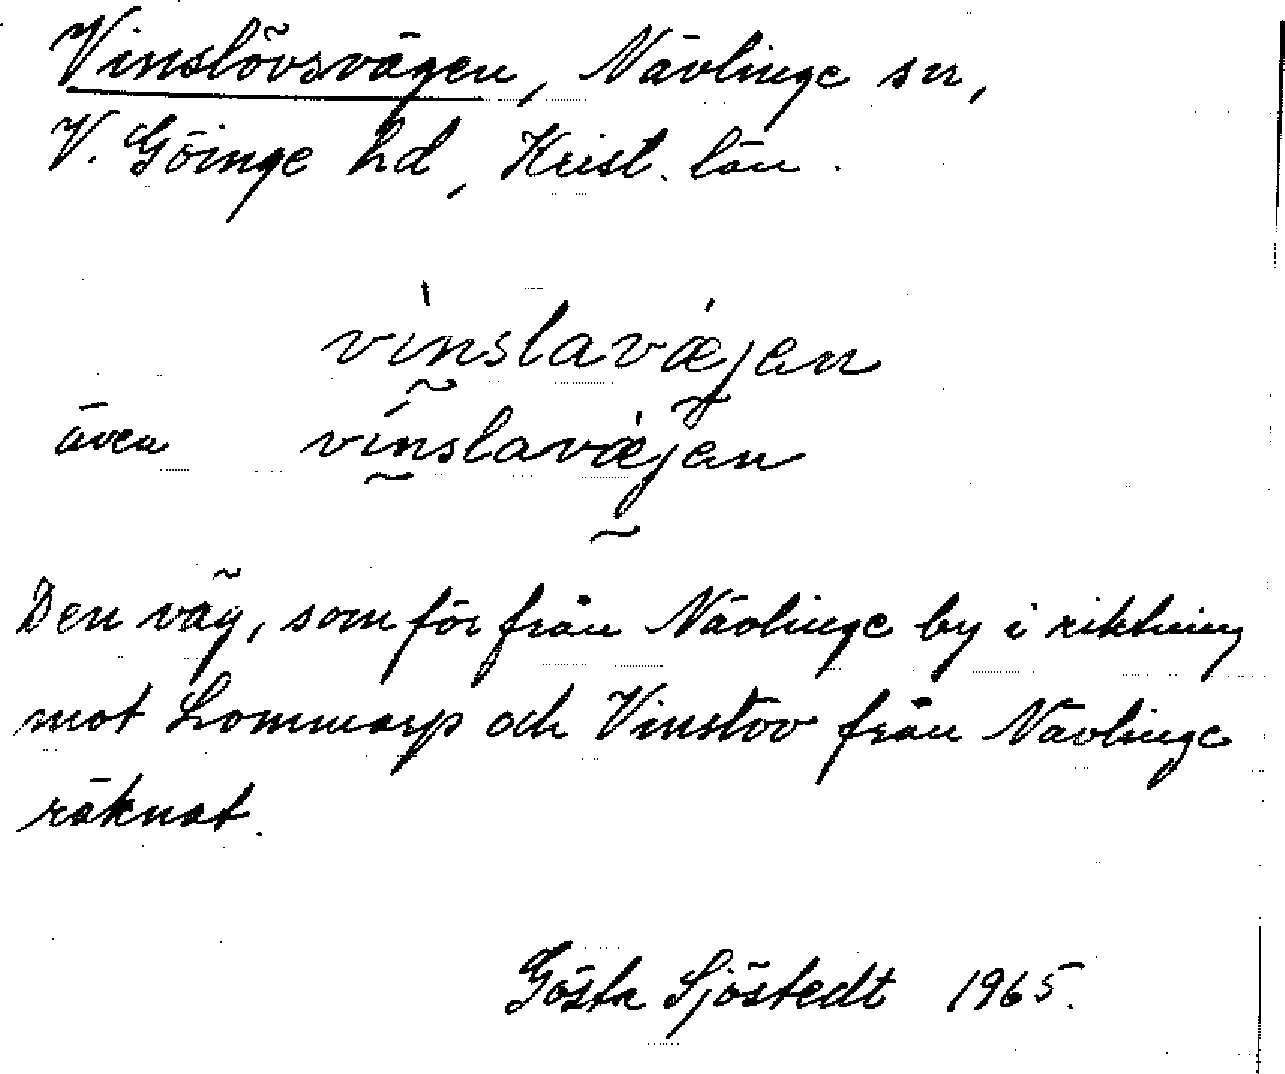 Vinslövsvägen, Nävlinge sn,
V. Göinge hd, Krist. län.
vinslavæjan
även vinslavæjan
Den väg, som för från Nävlinge by i riktning
mot Lommarp och Vinslöv från Nävlinge
räknat.
Gösta Sjöstedt 1965.